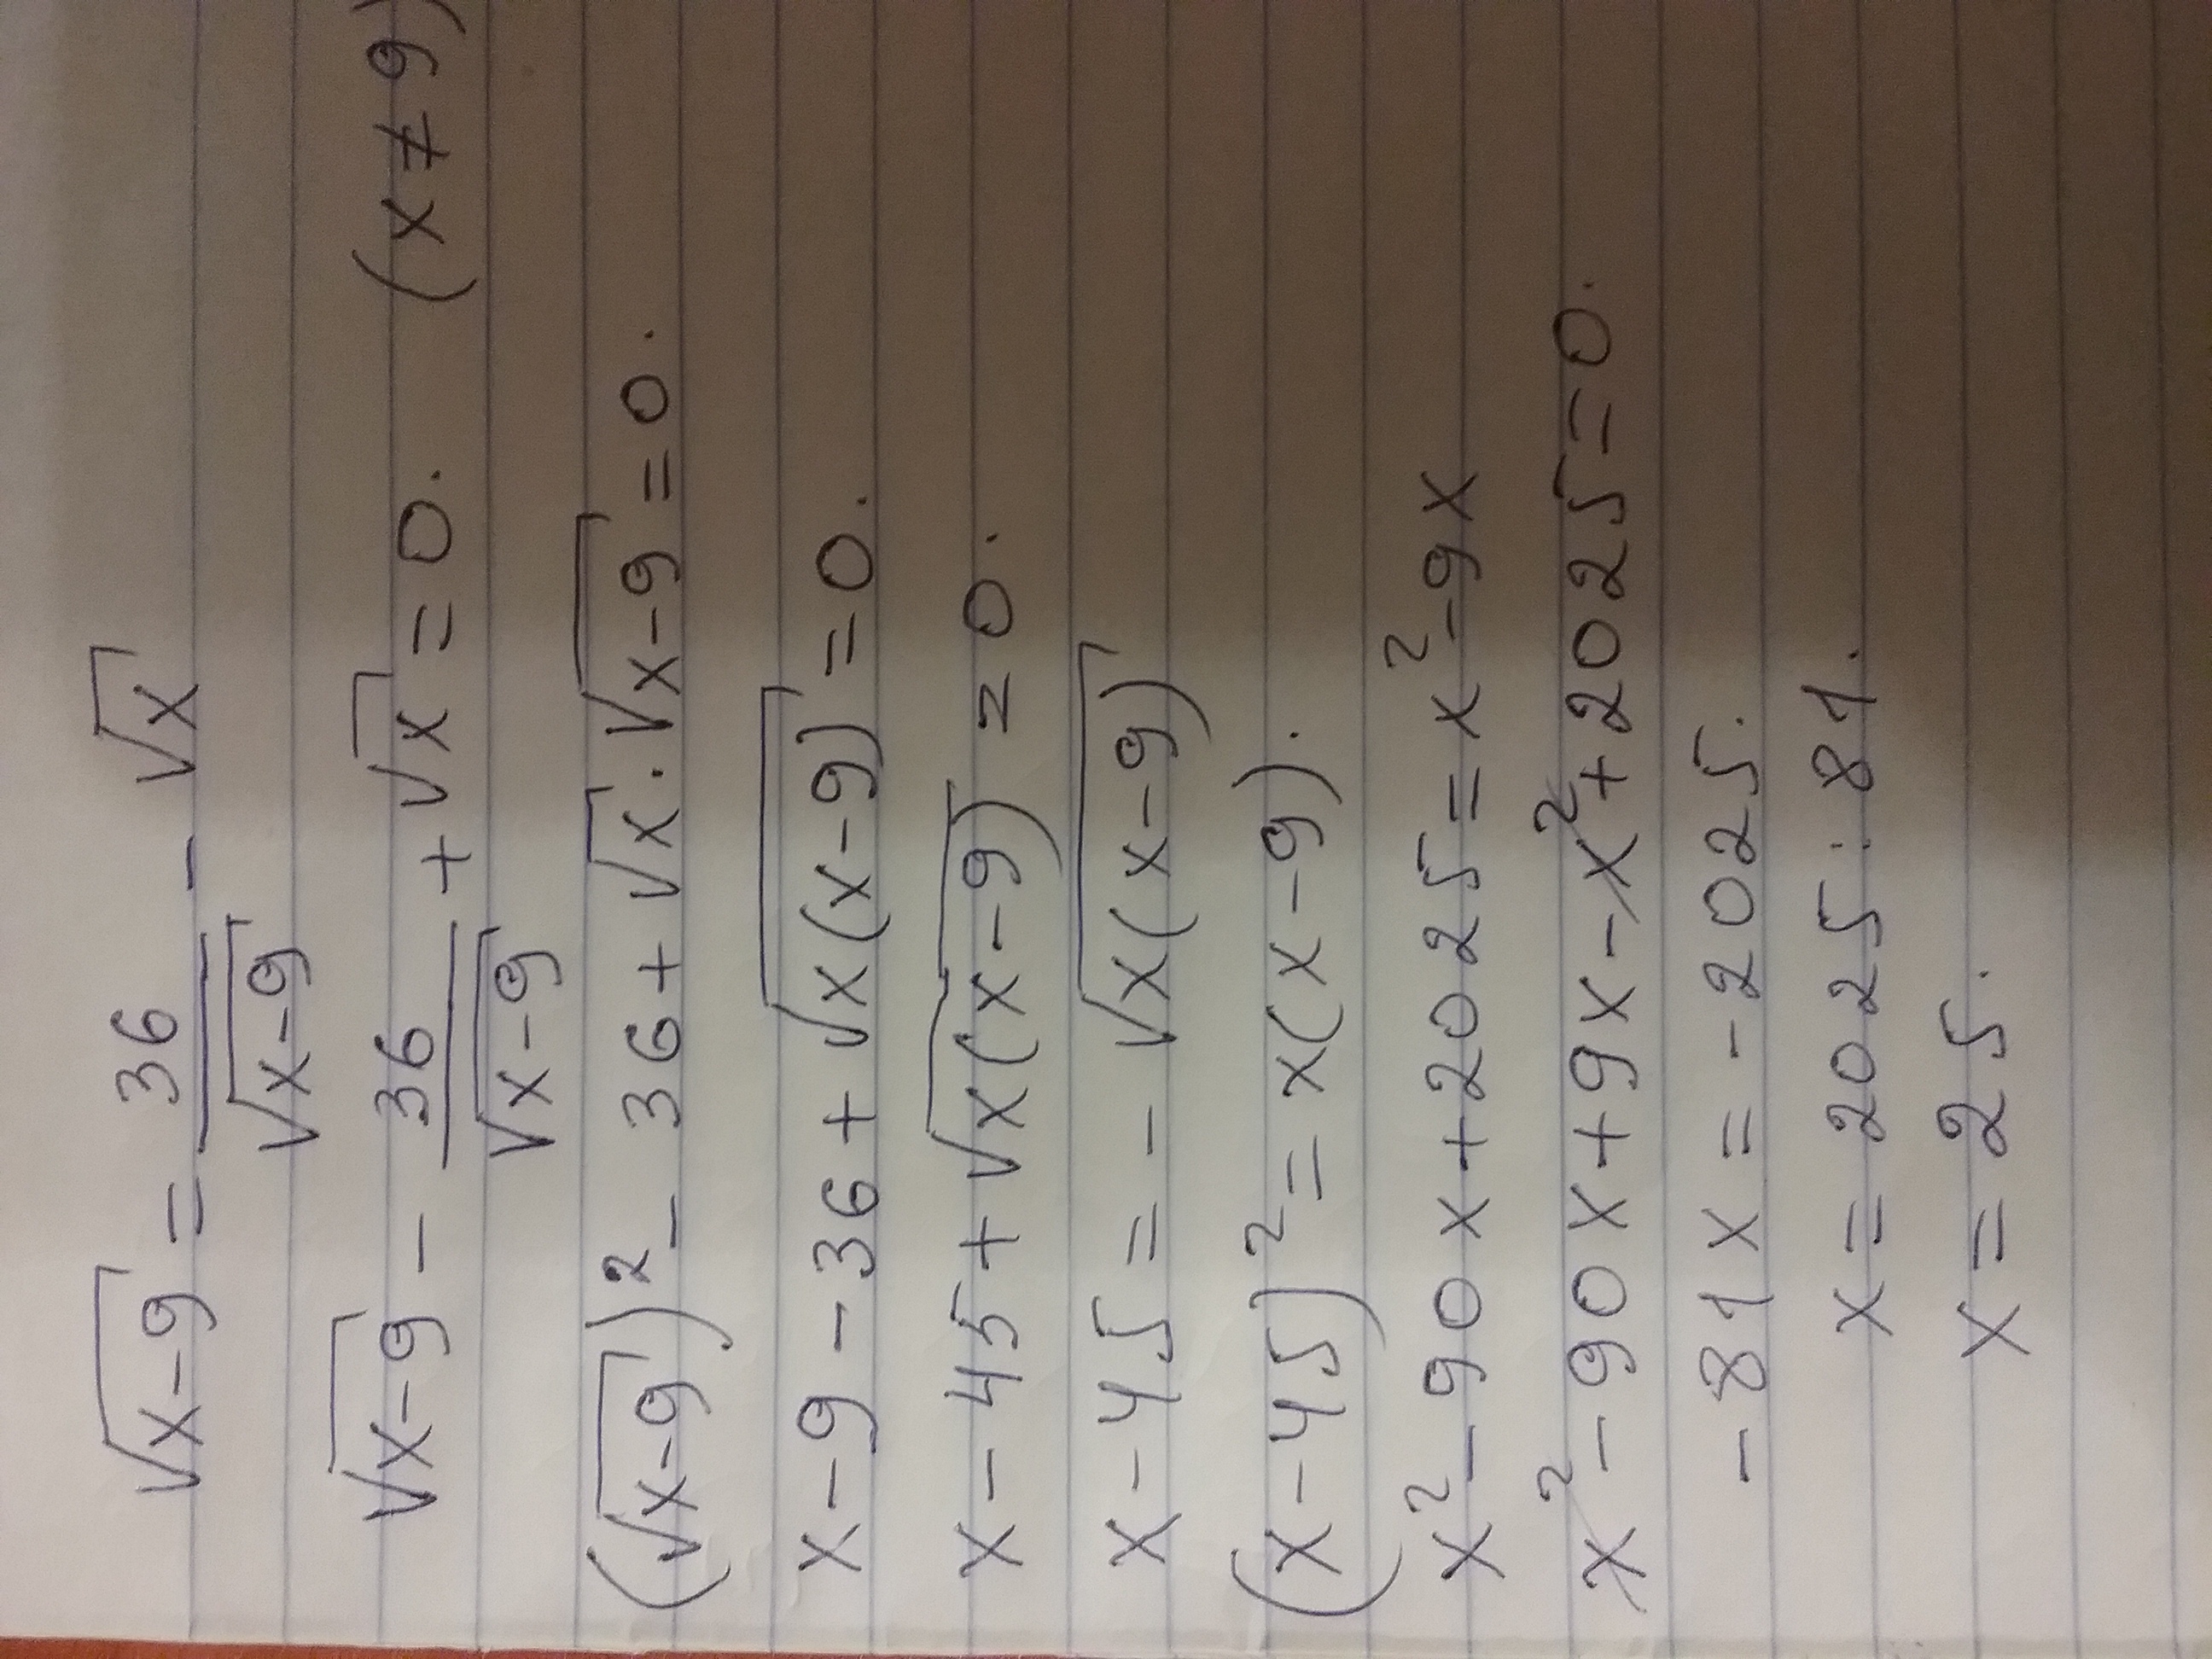 √(x-9) = 36/√(x-9) - √x
√(x-9) - 36/√(x-9) + √x = 0. (x ≠ 9)
(√(x-9))² - 36 + √x · √(x-9) = 0.
x - 9 - 36 + √(x(x-9)) = 0.
x - 45 + √(x(x-9)) = 0.
x - 45 = - √(x(x-9))
(x - 45)² = x(x-9).
x² - 90x + 2025 = x² - 9x
x² - 90x + 9x - x² + 2025 = 0.
-81x = -2025.
x = 2025 : 81.
x = 25.